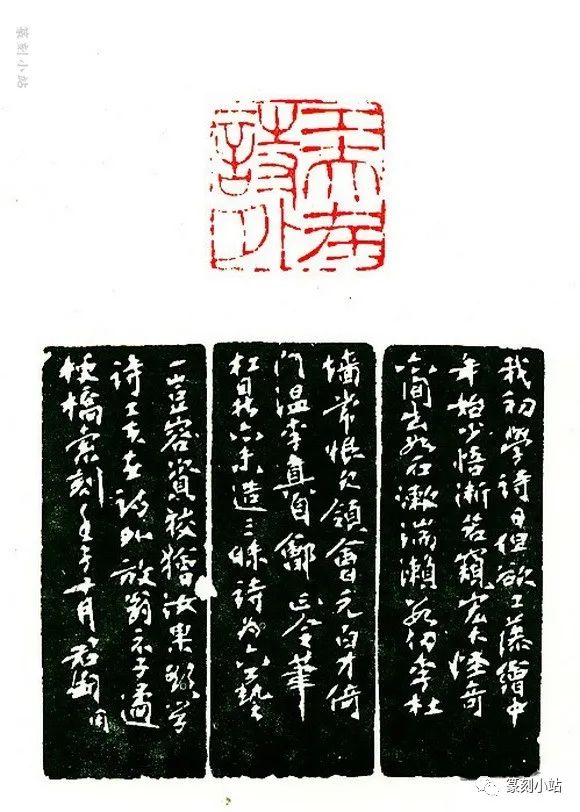 篆刻小站
工夫在
詩外
我初學詩日但欲工藻繪中
年始少悟漸若窺宏大怪奇
亦间出如石漱湍瀨數仞李杜
墻常恨欠領會元白才倚
门温李真自鄶正令筆
扛鼎亦未造三昧詩為六藝
一豈容資狡獪汝果欲學
诗工夫在詩外放翁示子遹
橋索刻壬子十月君匋
篆刻小站